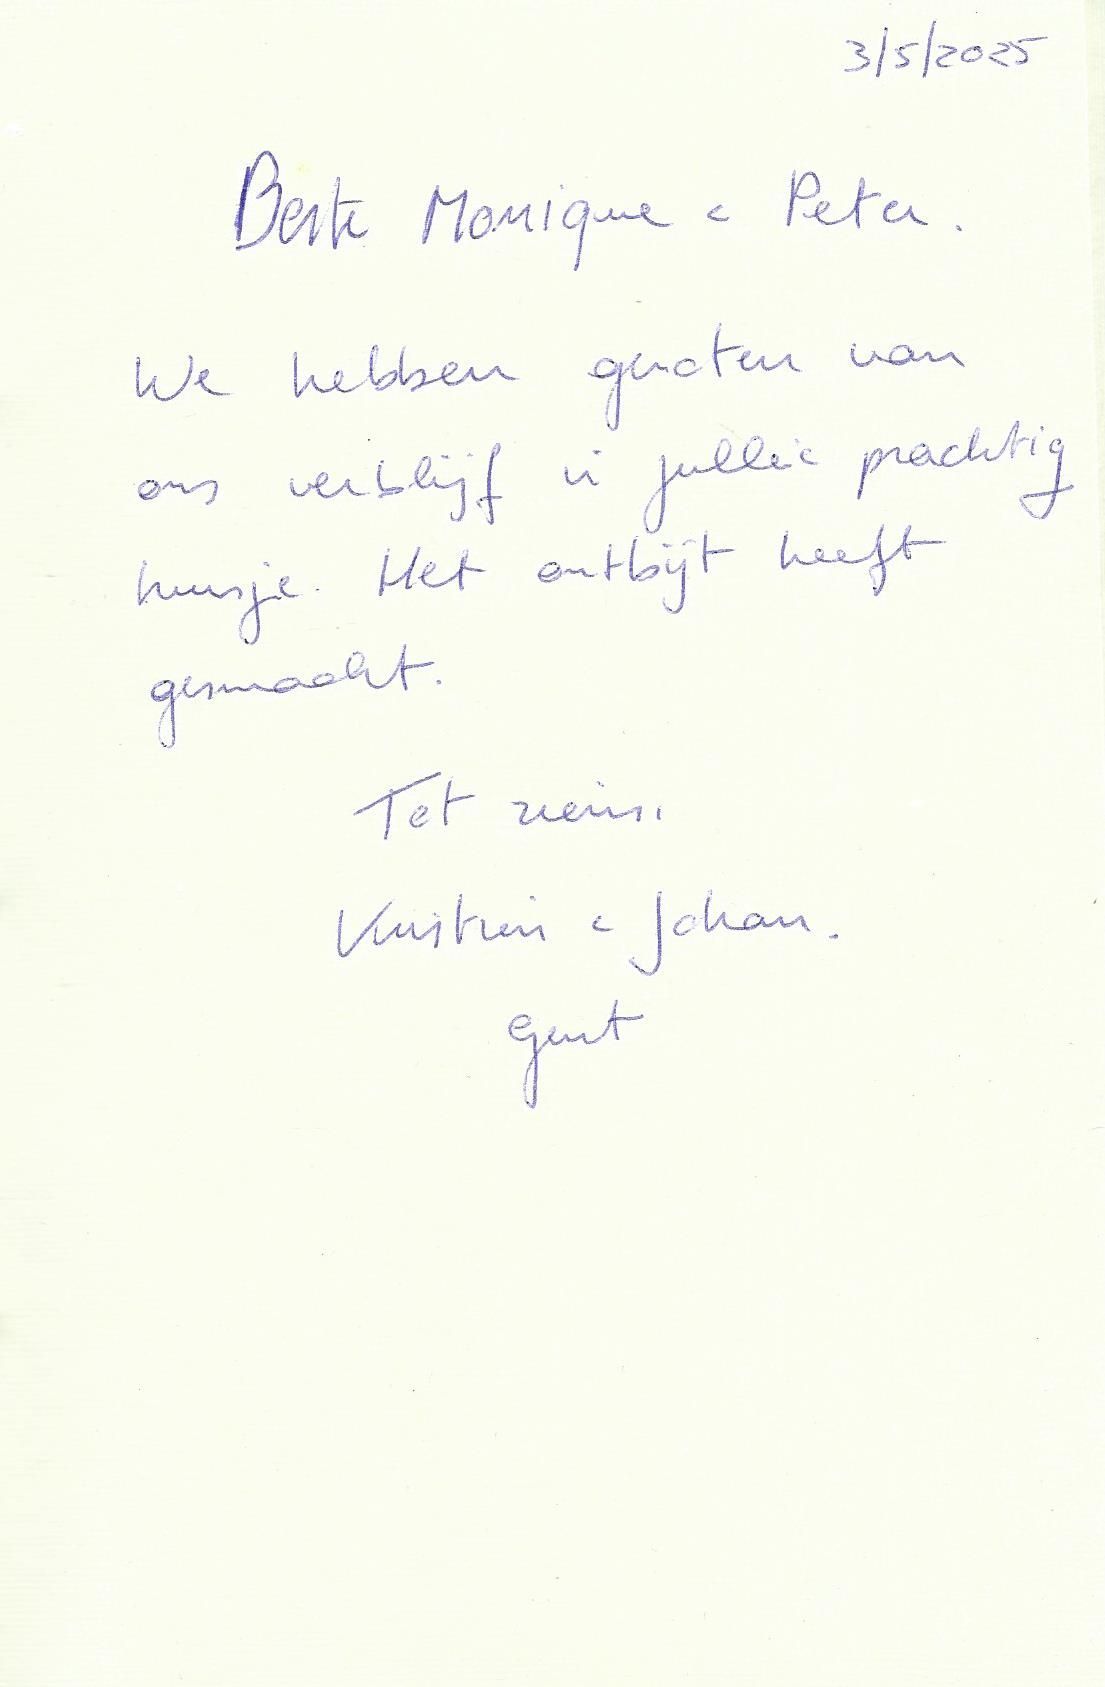 3/5/2025
Beste Monique & Peter.
We hebben genoten van
ons verblijf in jullie prachtig
huisje. Het ontbijt heeft
gesmaakt.
Tot ziens.
Kristien & Johan.
Gent